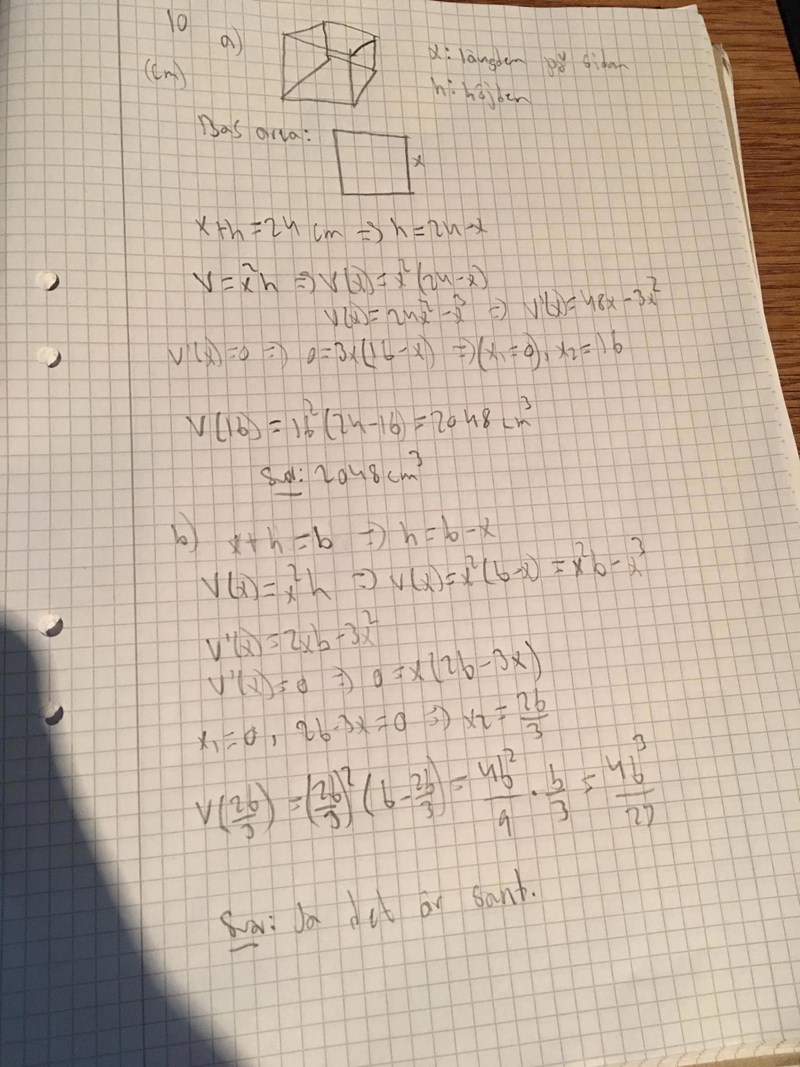 10 a)
(cm)
x: längden på sidan
h: höjden
Bas area: x
x+h=24 cm => h=24-x
V=x²h => V(x)=x²(24-x)
V(x)=24x²-x³ => V'(x)=48x-3x²
V'(x)=0 => 0=3x(16-x) => (x₁=0), x₂=16
V(16)=16²(24-16)=2048 cm³
Svar: 2048 cm³
b) x+h=b => h=b-x
V(x)=x²h => V(x)=x²(b-x)=bx²-x³
V'(x)=2bx-3x²
V'(x)=0 => 0=x(2b-3x)
x₁=0, 2b-3x=0 => x₂=2b/3
V(2b/3)=(2b/3)²(b-2b/3)=4b²/9·b/3=4b³/27
Svar: Ja det är sant.